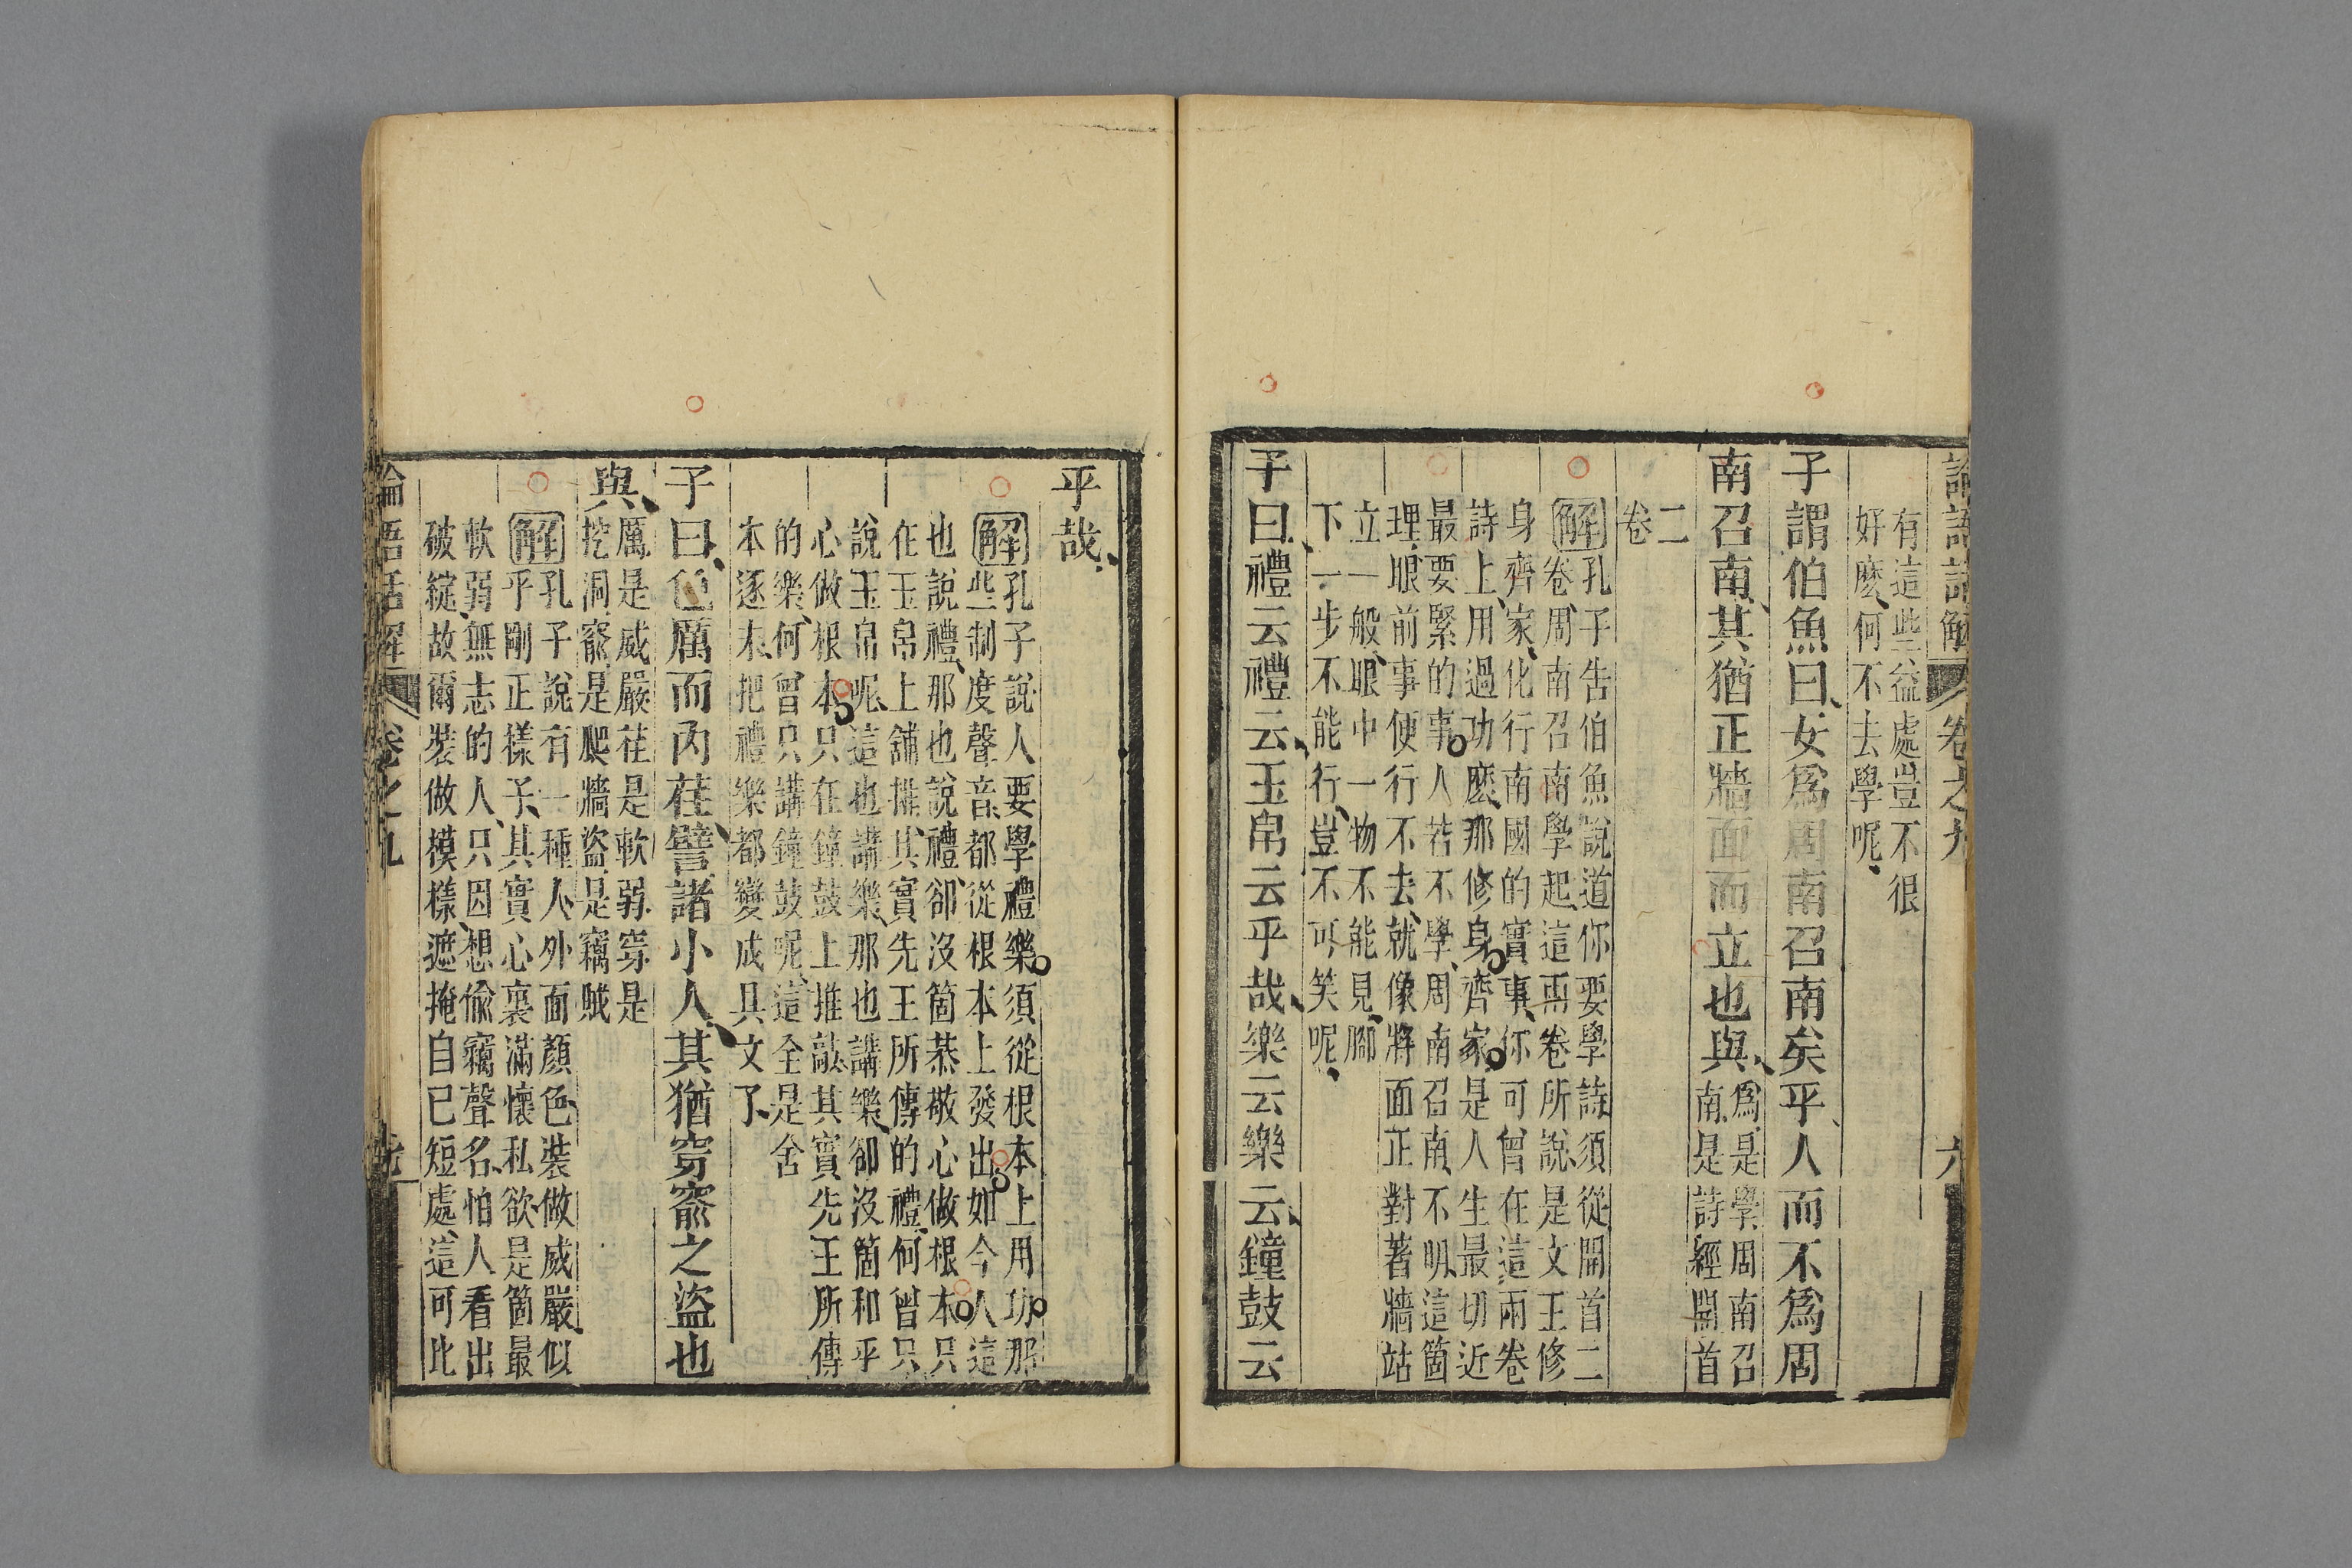 論語話解 卷之九
有這些益處豈不很
好麽、何不去學呢、
子謂伯魚曰、女爲周南召南矣乎、人而不爲周
南召南、其猶正牆面而立也與、
爲、是學、周南召
南、是詩經開首
二
卷
解
孔子告伯魚說道你要學詩須從開首二
卷、周南召南學起、這兩卷所說、是文王修
身齊家、化行南國的實事、你可曾在這兩卷
詩上、用過功麽、那修身齊家、是人生最切近
最要緊的事、人若不學、周南召南、不明、這箇
理、眼前事便行不去、就像將面正對著牆站
立一般、眼中一物不能見、腳
下一步不能行、豈不可笑呢、
子曰、禮云禮云、玉帛云乎哉、樂云樂云、鐘鼓云
乎哉、
解
孔子說人要學禮樂須從根本上用功那
些制度聲音、都從根本上發出如今人這
也說禮、那也說禮、卻沒箇恭敬心做根本只
在玉帛上舖排、其實先王所傳的禮、何曾只
說玉帛呢、這也講樂、那也講樂、卻沒箇和平
心做根本只在鐘鼓上推敲、其實先王所傳
的樂、何曾只講鐘鼓呢、這全是舍
本逐末、把禮樂都變成具文了、
子曰、色厲而內荏、譬諸小人、其猶穿窬之盜也
與、
厲、是威嚴荏是軟弱、穿、是
挖洞、窬、是爬牆盜、是竊賊
解
孔子說有一種人、外面顏色、裝做威嚴、似
乎剛正樣子、其實心裏滿懷私欲、是箇最
軟弱無志的人、只因想偷竊聲名、怕人看出
破綻、故爾裝做模樣、遮掩自己短處、這可比
論語話解 卷之九